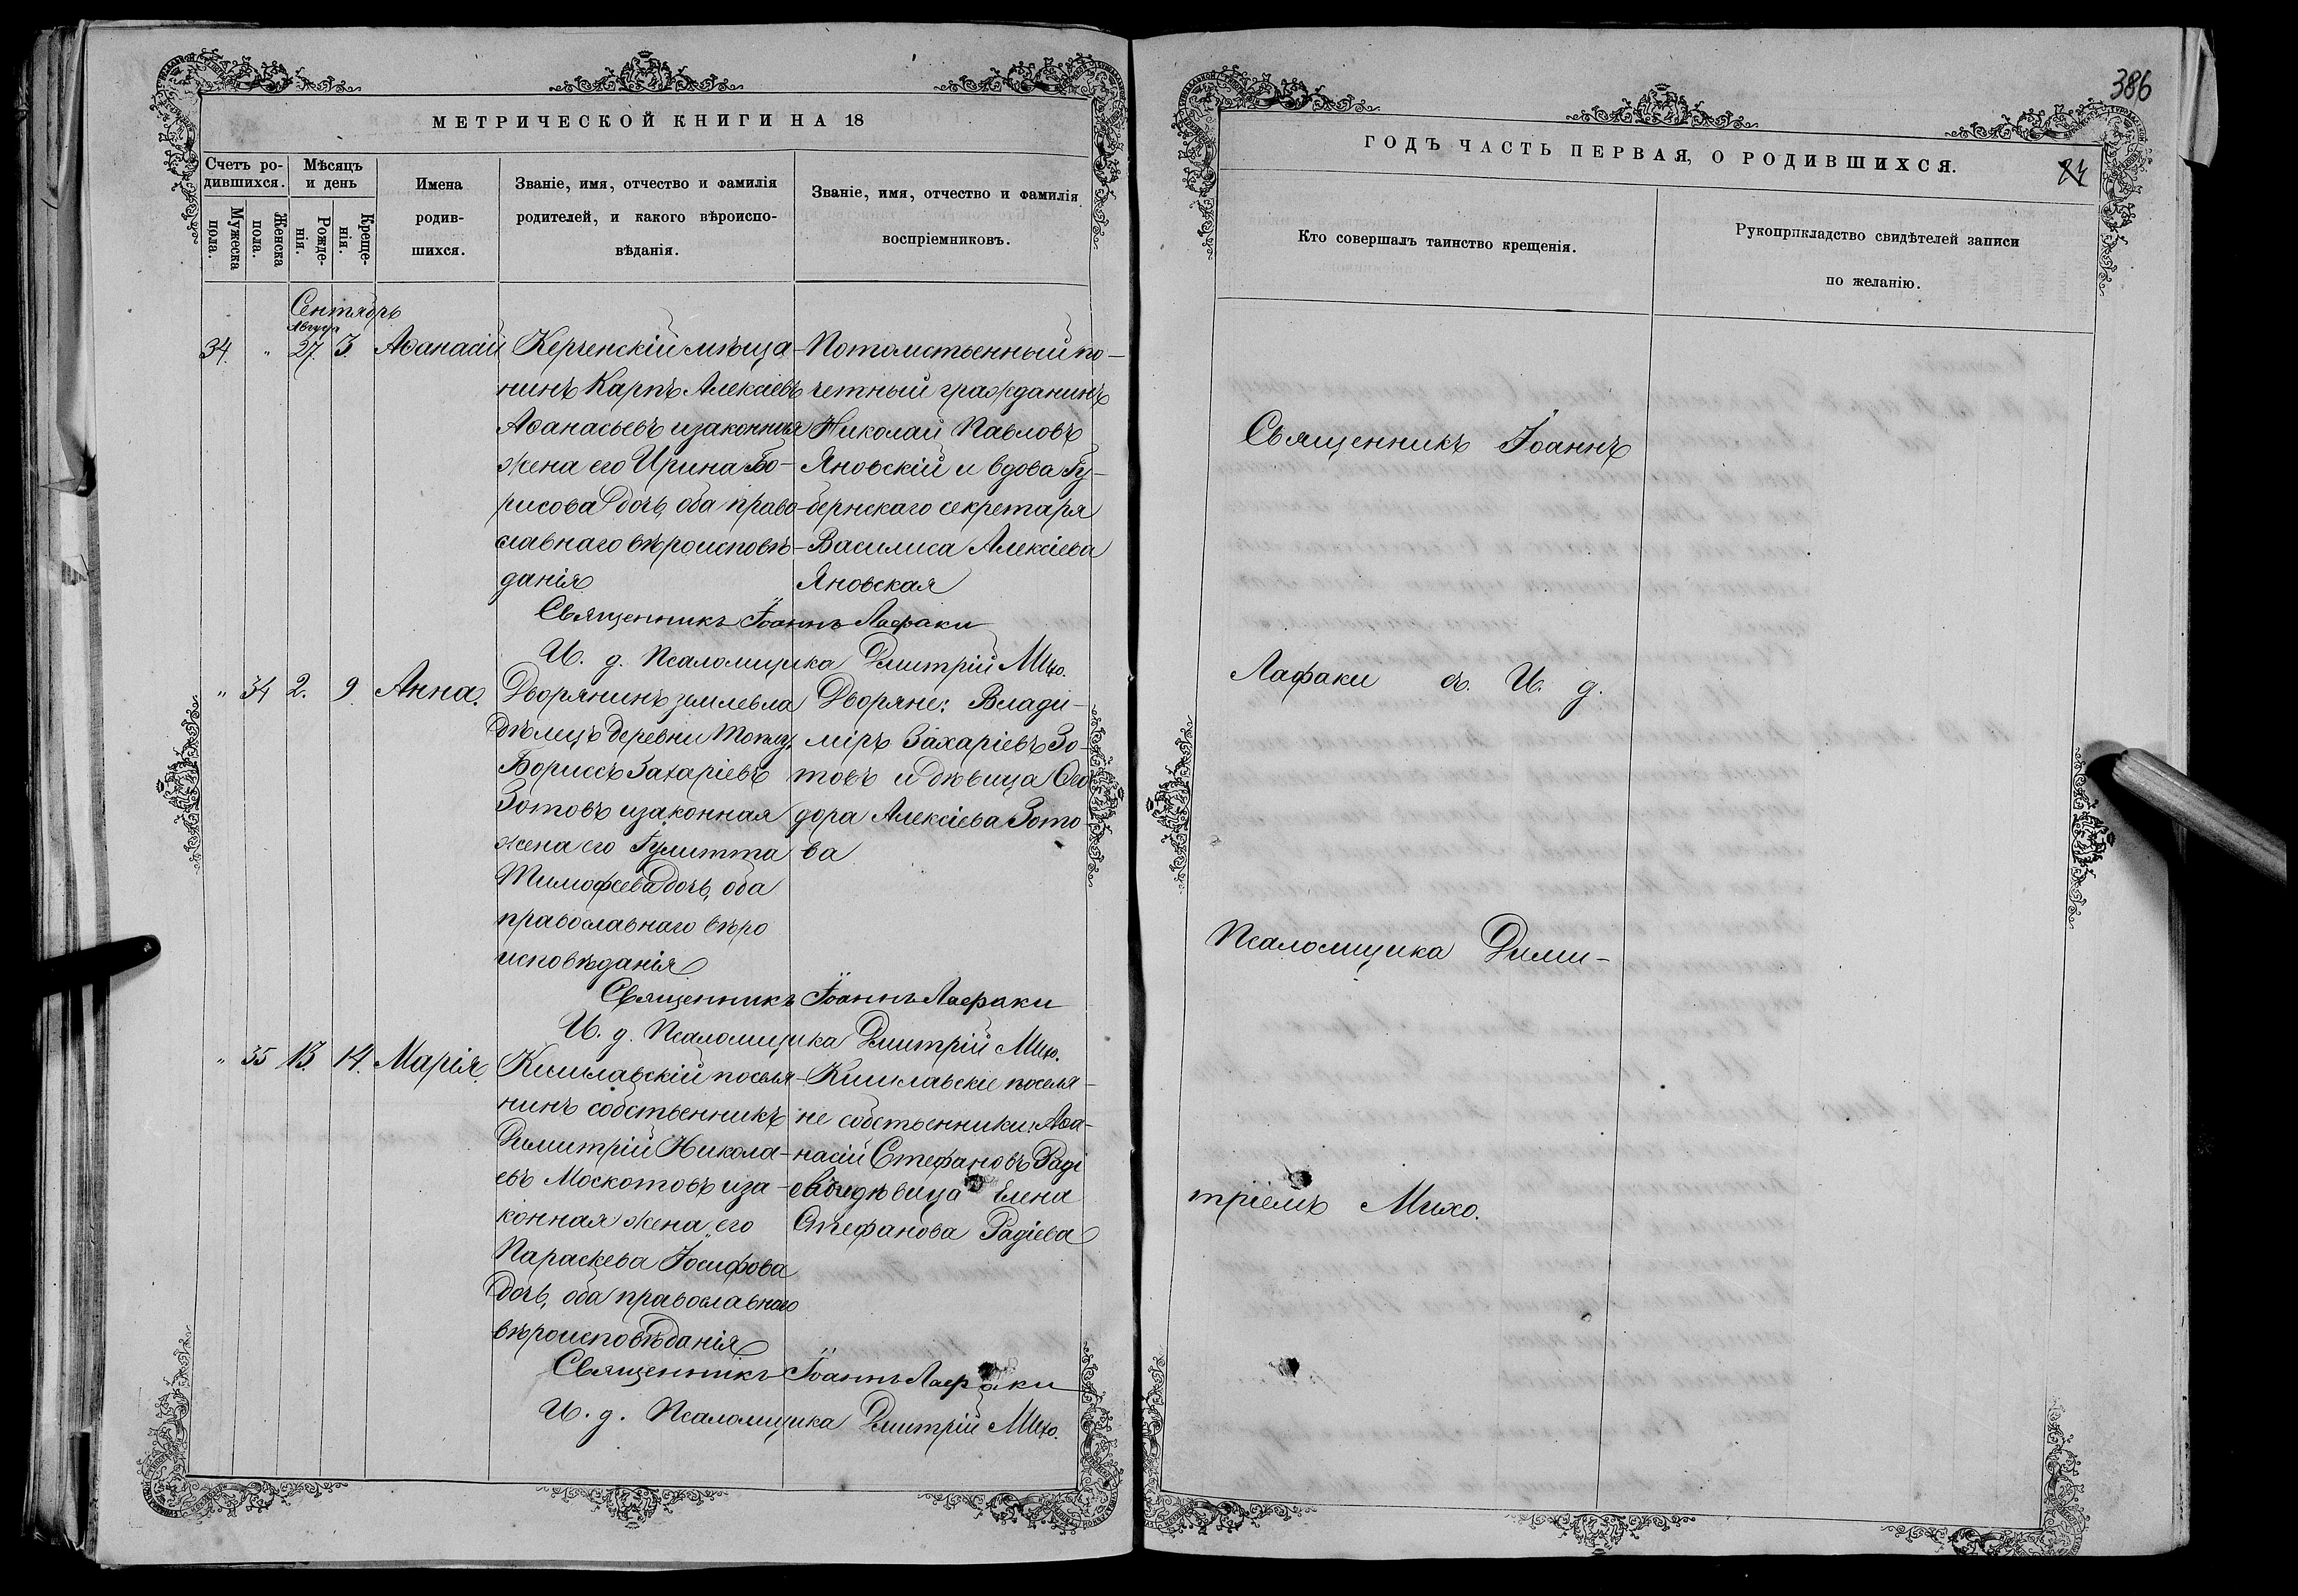 МЕТРИЧЕСКОЙ КНИГИ НА 18
Счетъ ро-
дившихся.
Мужеска
пола.
Женска
пола.
Мѣсяцъ
и день
Рожде-
нія.
Креще-
нія.
Имена
родив-
шихся.
Званіе, имя, отчество и фамилія
родителей, и какого вѣроиспо-
вѣданія.
Званіе, имя, отчество и фамилія
воспріемниковъ.
Сентябрь
Августа
34. " 27. 3. Аѳанасій
Керченскій мѣща-
нинъ Карпъ Алексіевъ
Аѳанасьевъ и законная
жена его Ирина Бо-
рисова дочь, оба право-
славнаго вѣроисповѣ-
данія
Потомственный по-
четный гражданинъ
Николай Павловъ
Яновскій и вдова Гу-
бернскаго секретаря
Василиса Алексіева
Яновская
Священникъ Іоаннъ Лафаки
И. д. Псаломщика Дмитрій Михо.
" 34 2. 9. Анна.
Дворянинъ землевла
дѣлецъ деревни
Борисъ Захаріевъ
Зотовъ и законная
жена его Іулитта
Тимофеева дочь, оба
православнаго вѣро
исповѣданія
Дворяне: Влади-
міръ Захаріевъ Зо-
товъ и дѣвица Ѳео
дора Алексіева Зото-
ва
Священникъ Іоаннъ Лафаки
И. д. Псаломщика Дмитрій Михо.
" 35 13. 14. Марія.
Кишлавскій поселя-
нинъ собственникъ
Димитрій Никола-
евъ Москотовъ и за-
конная жена его
Параскева Іосифова
дочь, оба православнаго
вѣроисповѣданія
Кишлавскіе поселя-
не собственники: Аѳа-
насій Стефановъ Раді
евъ и дѣвица Елена
Стефанова Радіева
Священникъ Іоаннъ Лафаки
И. д. Псаломщика Дмитрій Михо.
386
ГОДЪ ЧАСТЬ ПЕРВАЯ, О РОДИВШИХСЯ.
Кто совершалъ таинство крещенія.
Рукоприкладство свидѣтелей записи
по желанію.
Священникъ Іоаннъ
Лафаки съ И. д.
Псаломщика Дими-
тріемъ Михо.